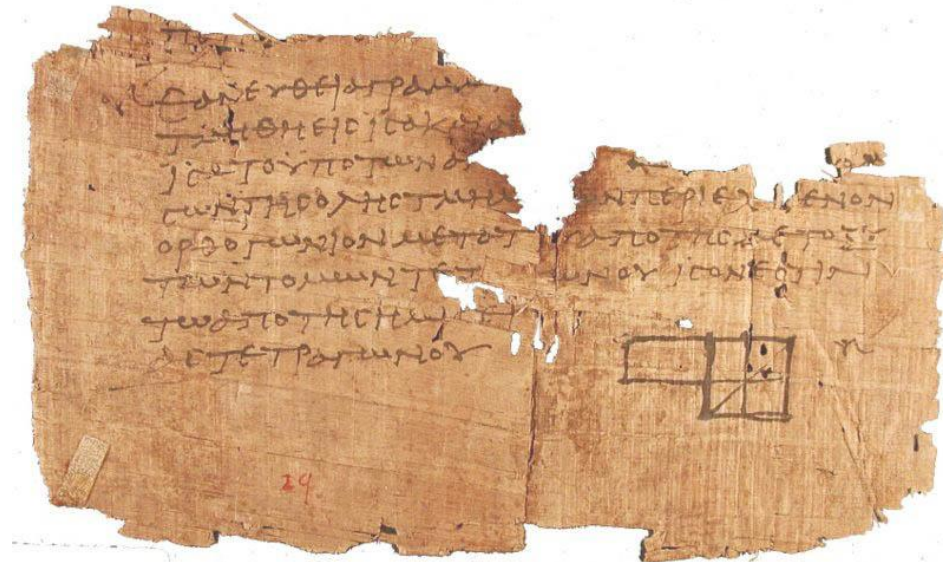 ΕΑΝΕΥΘΕΙΑΓΡΑΜ
ΤΜΗΘΗΕΙϹΙϹΑΚΑΙΑ
ΙϹΑΤΟΥΠΟΤΩΝΑ
ϹΩΝΤΗϹΟΛΗϹΤΜΗΜ ΩΝΠΕΡΙΕΧ ΕΝΟΝ
ΟΡΘΟΓΩΝΙΟΝΜΕΤΟΤ ΑΠΟΤΗϹΜΕΤΟΞΥ
ΤΩΝΤΟΜΩΝΤΕΤ ΩΝΟΥΙϹΟΝΕϹΤΙΝ
ΤΩΑΠΟΤΗϹΗΜΙ
ΑϹΤΕΤΡΑΓΩΝΟΥ
29.